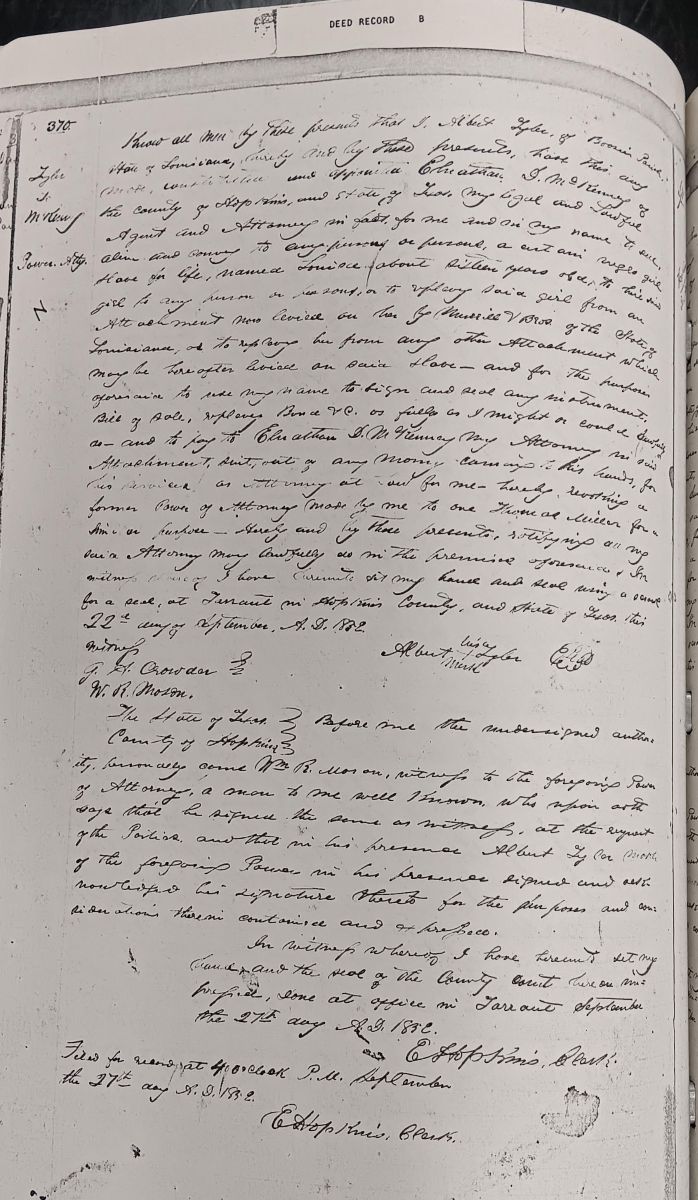 DEED RECORD B
370.
Tyler
To
McKenny
Power. Atty.
Know all Men by These presents that I, Albert Tyler, of Bossier Parish,
State of Louisiana, hereby and by These presents, have this day
made, constituted and appointed Elnathan D. McKenney of
the County of Hopkins, and State of Texas my legal and Lawful
Agent and Attorney in fact, for me and in my name to sell,
alien and convey to any person or persons, a certain negro girl
slave for life, named Louisa about sixteen years old, to hire said
girl to any person or persons, or to replevy said girl from an
Attachment now levied on her by Murrell & Bros. of the State of
Louisiana, or to replevy her from any other Attachment which
may be hereafter levied on said slave — and for the purposes
aforesaid to use my name to sign and seal any instrument,
Bill of sale, replevy Bond &C. as fully as I might or could lawfully
do — and to pay to Elnathan D. McKenney My Attorney in said
Attachment, suit, out of any money coming to his hands, for
his services as Attorney at Law for me — hereby revoking a
former Power of Attorney made by me to one Thomas Miller for a
similar purpose — Hereby and by these presents, ratifying all my
said Attorney may lawfully do in the premises aforesaid. In
witness whereof I have hereunto set my hand and seal using a scrawl
for a seal, at Tarrant in Hopkins County, and State of Texas this
22d day of September, A. D. 1852
witness
Albert his X mark Tyler
G. H. Crowder
W. R. Moson.
The State of Texas
County of Hopkins
Before me the undersigned author-
ity, personally come Wm R. Moson, witness to the foregoing Power
of Attorney, a man to me well Known, who upon oath
says that he signed the same as witness, at the request
of the Parties, and that in his presence Albert Tyler
of the foregoing Power in his presence signed and ack-
nowledged his signature thereto for the purposes and con-
siderations therein contained and expressed.
In witness whereof I have hereunto set my
hand, and the seal of the County Court hereon im-
pressed, done at office in Tarrant September
the 27th day A.D. 1852.
E Hopkins, Clerk.
Filed for record at 4 o'clock P. M. September
the 27th day A. D. 1852.
E Hopkins, Clerk.